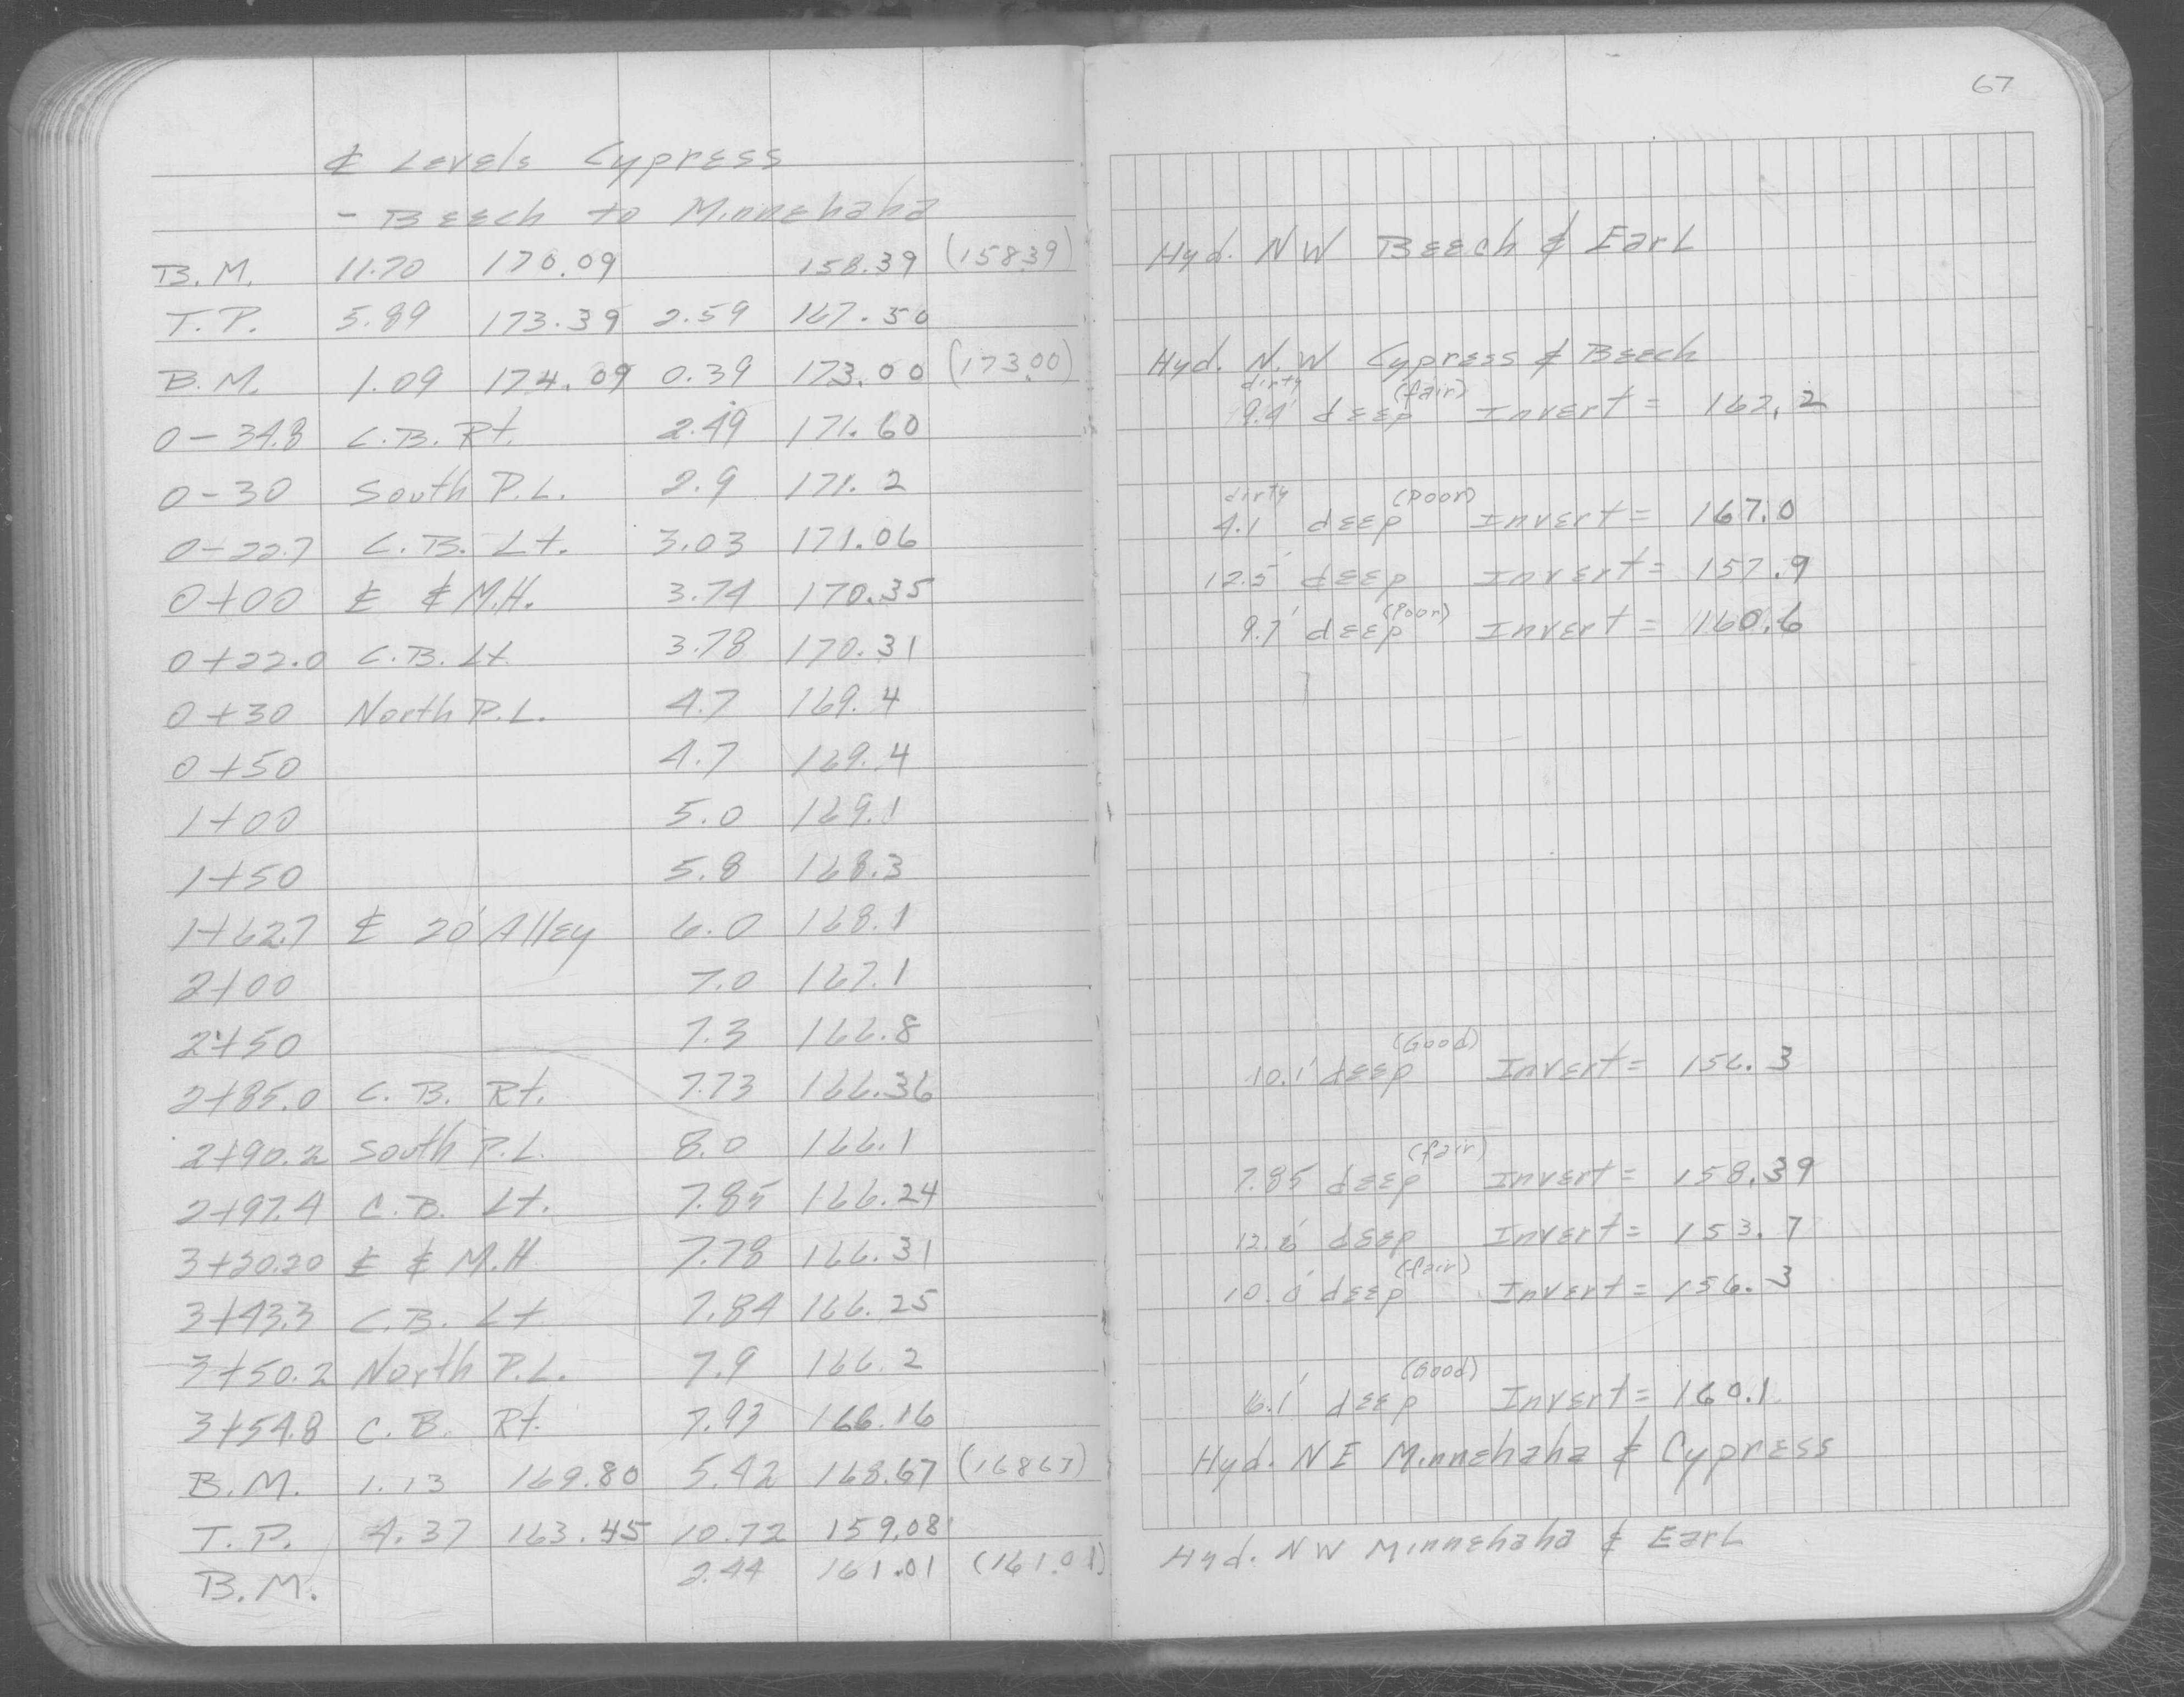 67
₵ Levels Cypress
- Beech to Minnehaha
B.M. 11.70 170.09 158.39 (158.39) Hyd. NW Beech & Earl
T.P. 5.89 173.39 2.59 167.50
B.M. 1.09 174.09 0.39 173.00 (173.00) Hyd. N.W Cypress & Beech
0-34.8 C.B. Rt. 2.49 171.60 dirty 9.4' deep (fair) Invert = 162.2
0-30 South P.L. 2.9 171.2
0-22.7 C.B. Lt. 3.03 171.06 dirty 4.1 deep (Poor) Invert = 167.0
0+00 ₵ & M.H. 3.74 170.35 12.5' deep Invert = 157.9
0+22.0 C.B. Lt 3.78 170.31 9.7' deep (Poor) Invert = 160.6
0+30 North P.L. 4.7 169.4
0+50 4.7 169.4
1+00 5.0 169.1
1+50 5.8 168.3
1+62.7 ₵ 20' Alley 6.0 168.1
2+00 7.0 167.1
2+50 7.3 166.8
2+85.0 C.B. Rt. 7.73 166.36 10.1' deep (Good) Invert = 156.3
2+90.2 South P.L. 8.0 166.1
2+97.4 C.B. Lt. 7.85 166.24 7.85 deep (fair) Invert = 158.39
3+20.20 ₵ & M.H 7.78 166.31 12.6' deep Invert = 153.7
3+43.3 C.B. Lt 7.84 166.25 10.0' deep (fair) Invert = 156.3
3+50.2 North P.L. 7.9 166.2
3+54.8 C.B. Rt. 7.93 166.16 6.1' deep (Good) Invert = 160.1
B.M. 1.13 169.80 5.42 168.67 (168.67) Hyd. NE Minnehaha & Cypress
T.P. 4.37 163.45 10.72 159.08
B.M. 2.44 161.01 (161.01) Hyd. NW Minnehaha & Earl